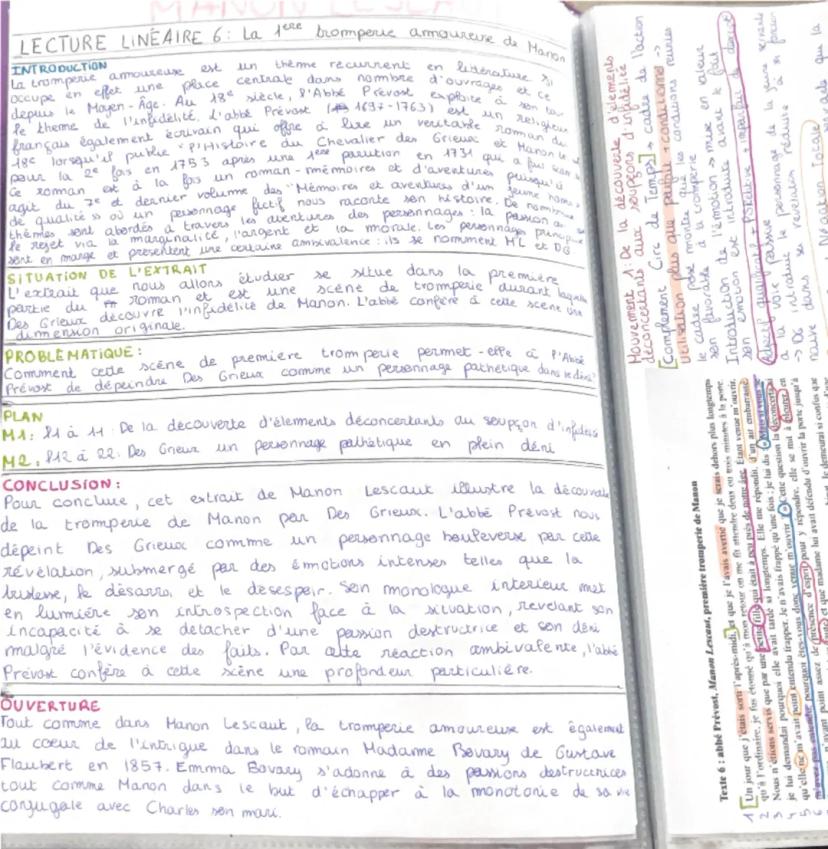 MANON LESCAUT
LECTURE LINÉAIRE 6 : La 1ère tromperie amoureuse de Manon
INTRODUCTION
La tromperie amoureuse est un thème recurrent en littérature si
occupe en effet une place centrale dans nombre d'ouvrages et ce
depuis le Moyen-Âge. Au 18e siècle, l'Abbé Prévost exploite à son tour
le thème de l'infidélité. L'abbé Prévost (1697-1763) est un religieux
français également écrivain qui offre à lire un veritable roman du
18e lorsqu'il publie "l'Histoire du Chevalier des Grieux et Manon
pour la 2e fois en 1753 après une 1ère parution en 1731 qui a fait
Ce roman est à la fois un roman-mémoires et d'aventures puisqu'il
agit du 7e et dernier volume des "Mémoires et aventures d'un jeune homme
de qualité" où un personnage fictif nous raconte son histoire. De nombreux
thèmes sont abordés à travers les aventures des personnages : la passion
le rejet via la marginalité, l'argent et la morale. Les personnages principaux
sont en marge et présentent une certaine ambivalence : ils se nomment ML et DG
SITUATION DE L'EXTRAIT
L'extrait que nous allons étudier se situe dans la première
partie du roman et est une scène de tromperie durant laquelle
Des Grieux découvre l'infidélité de Manon. L'abbé confère à cette scène une
dimension originale.
PROBLÉMATIQUE :
Comment cette scène de première tromperie permet-elle à l'Abbé
Prévost de dépeindre Des Grieux comme un personnage pathétique dans le déni?
PLAN
M1 : l1 à 11 : De la découverte d'élements déconcertants au soupçon d'infidélité
M2 : l12 à 22 : Des Grieux un personnage pathétique en plein déni
CONCLUSION :
Pour conclure, cet extrait de Manon Lescaut illustre la découverte
de la tromperie de Manon par Des Grieux. L'abbé Prévost nous
dépeint Des Grieux comme un personnage bouleversé par cette
révélation, submergé par des émotions intenses telles que la
tristesse, le désarroi et le desespoir. Son monologue interieur met
en lumière son introspection face à la situation, revelant son
incapacité à se detacher d'une passion destructrice et son déni
malgré l'évidence des faits. Par cette réaction ambivalente, l'abbé
Prévost confère à cette scène une profondeur particulière.
OUVERTURE
Tout comme dans Manon Lescaut, la tromperie amoureuse est également
au coeur de l'intrigue dans le romain Madame Bovary de Gustave
Flaubert en 1857. Emma Bovary s'adonne à des passions destructrices
tout comme Manon dans le but d'échapper à la monotonie de sa vie
conjugale avec Charles son mari.
Mouvement 1 : De la découverte d'élements
déconcertants aux soupçons d'infidélité
[Complement Circ de Temps] → cadre de l'action
Utilisation plus que parfait + conditionnel →
le cadre posé montre que les conditions reunies
son favorables à la tromperie
Introduction de l'émotion → mise en valeur
son émotion est introduite avant le fait
Adjectif qualificatif + + imparfait de
à la voix passive
→ DG introduit le personnage de la jeune
naïve dans sa revelation réduite à sa fonction
Négation Totale
que la
Texte 6 : abbé Prévost, Manon Lescaut, première tromperie de Manon
1 Un jour que j'étais sorti l'après-midi, et que je l'avais avertie que je serais dehors plus longtemps
2 qu'à l'ordinaire, je fus étonné qu'à mon retour on me fît attendre deux ou trois minutes à la porte.
3 Nous n'étions servis que par une petite fille qui était à peu près de notre âge. Étant venue m'ouvrir,
4 je lui demandai pourquoi elle avait tardé si longtemps. Elle me répondit, d'un air embarrassé
5 qu'elle ne m'avait point entendu frapper. Je n'avais frappé qu'une fois, je lui dis : Mais si vous
6 m'avez pas entendu, pourquoi êtes-vous donc venue m'ouvrir ? Cette question la déconcerta
présence d'esprit pour y répondre, elle se mit à pleurer, en
n'avait point assez de
et que madame lui avait défendu d'ouvrir la porte jusqu'à
je demeurai si confus que